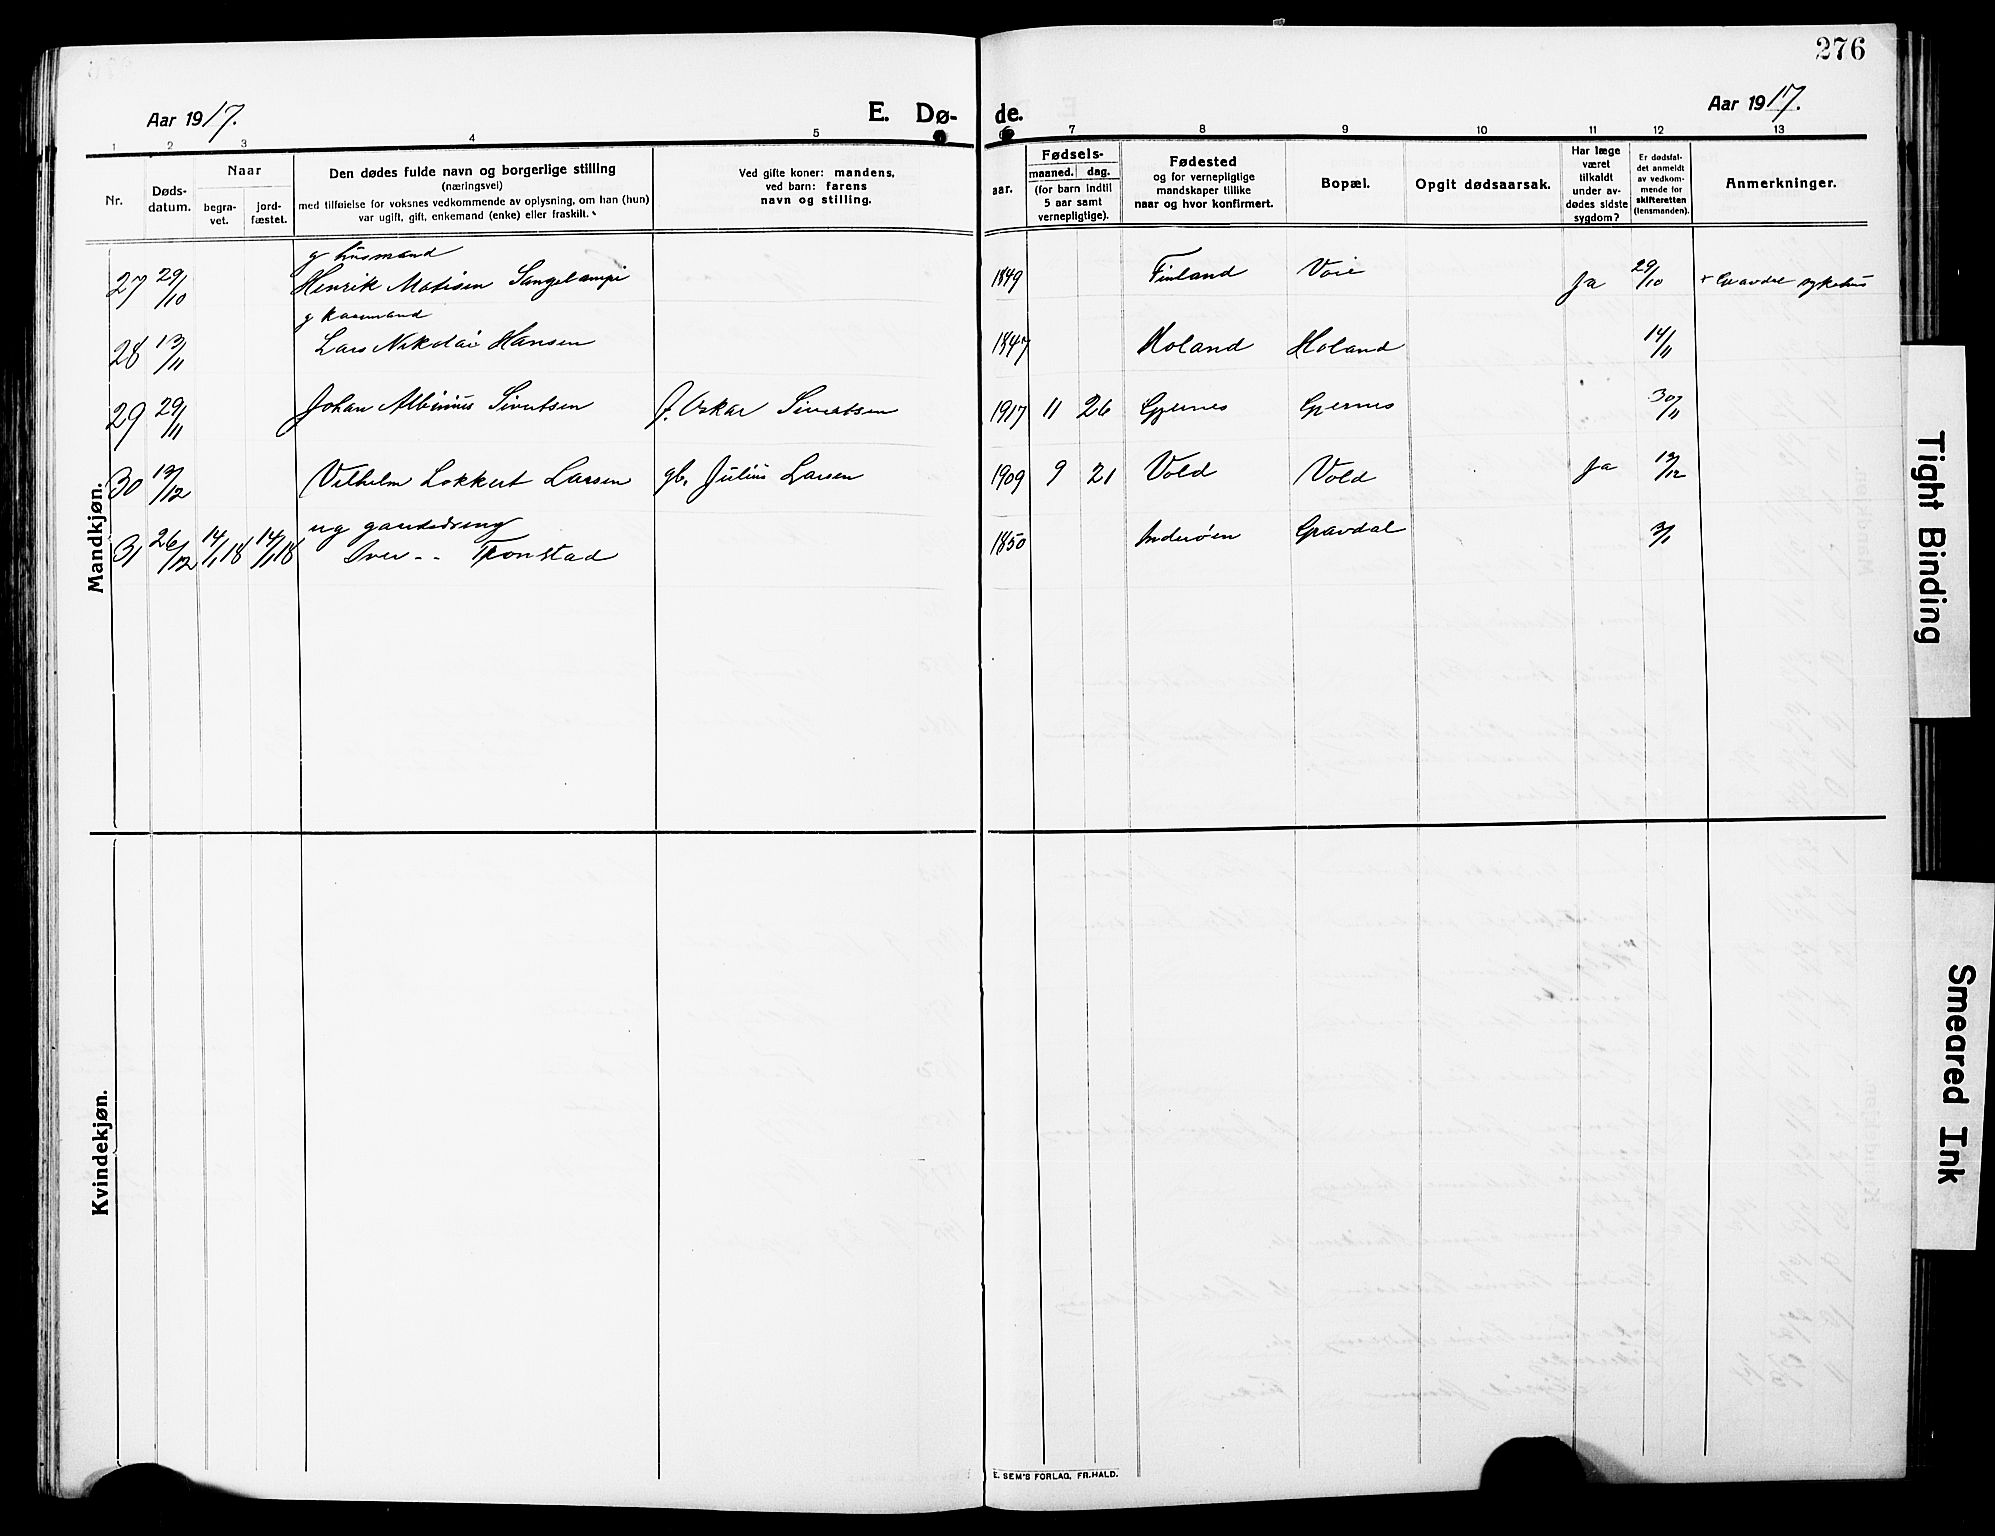 276
Aar 1917.
E. Dø-
de.
Aar 1917.
1 2 3 4 5 7 8 9 10 11 12 13
Nr.
Døds-
datum.
Naar
begra-
vet.
jord-
fæstet.
Den dødes fulde navn og borgerlige stilling
(næringsvei)
med tilføielse for voksnes vedkommende av oplysning, om han (hun)
var ugift, gift, enkemand (enke) eller fraskilt.
Ved gifte koner: mandens,
ved barn: farens
navn og stilling.
aar.
Fødsels-
maaned. dag.
(for barn indtil
5 aar samt
vernepligtige).
Fødested
og for vernepligtige
mandskaper tillike
naar og hvor konfirmert.
Bopæl.
Opgit dødsaarsak.
Har læge
været
tilkaldt
under av-
dødes sidste
sygdom?
Er dødsfal-
det anmeldt
av vedkom-
mende for
skifteretten
(lensmanden).
Anmerkninger.
Mandkjøn.
g husmand
27 29/10 Henrik Matisen Sangelampi 1849 Finland Voie Ja 29/10 + Gravdal sykehus
g kaarmand
28 13/11 Lars Nikolai Hansen 1847 Holand Holand 14/11
29 29/11 Johan Albinius Sivertsen f. Oskar Sivertsen 1917 11 26 Gjernes Gjernes 30/11
30 /12 Vilhelm Lokkert Larsen gb. Julius Larsen 1909 9 21 Vold Vold Ja /12
ug gaardsdreng
31 26/12 14/1 18 14/1 18 Iver -- Tronstad 1850 Inderøen Gravdal 3/1
Kvindekjøn.
E. SEM'S FORLAG, FR.HALD.
Tight Binding
Smeared Ink